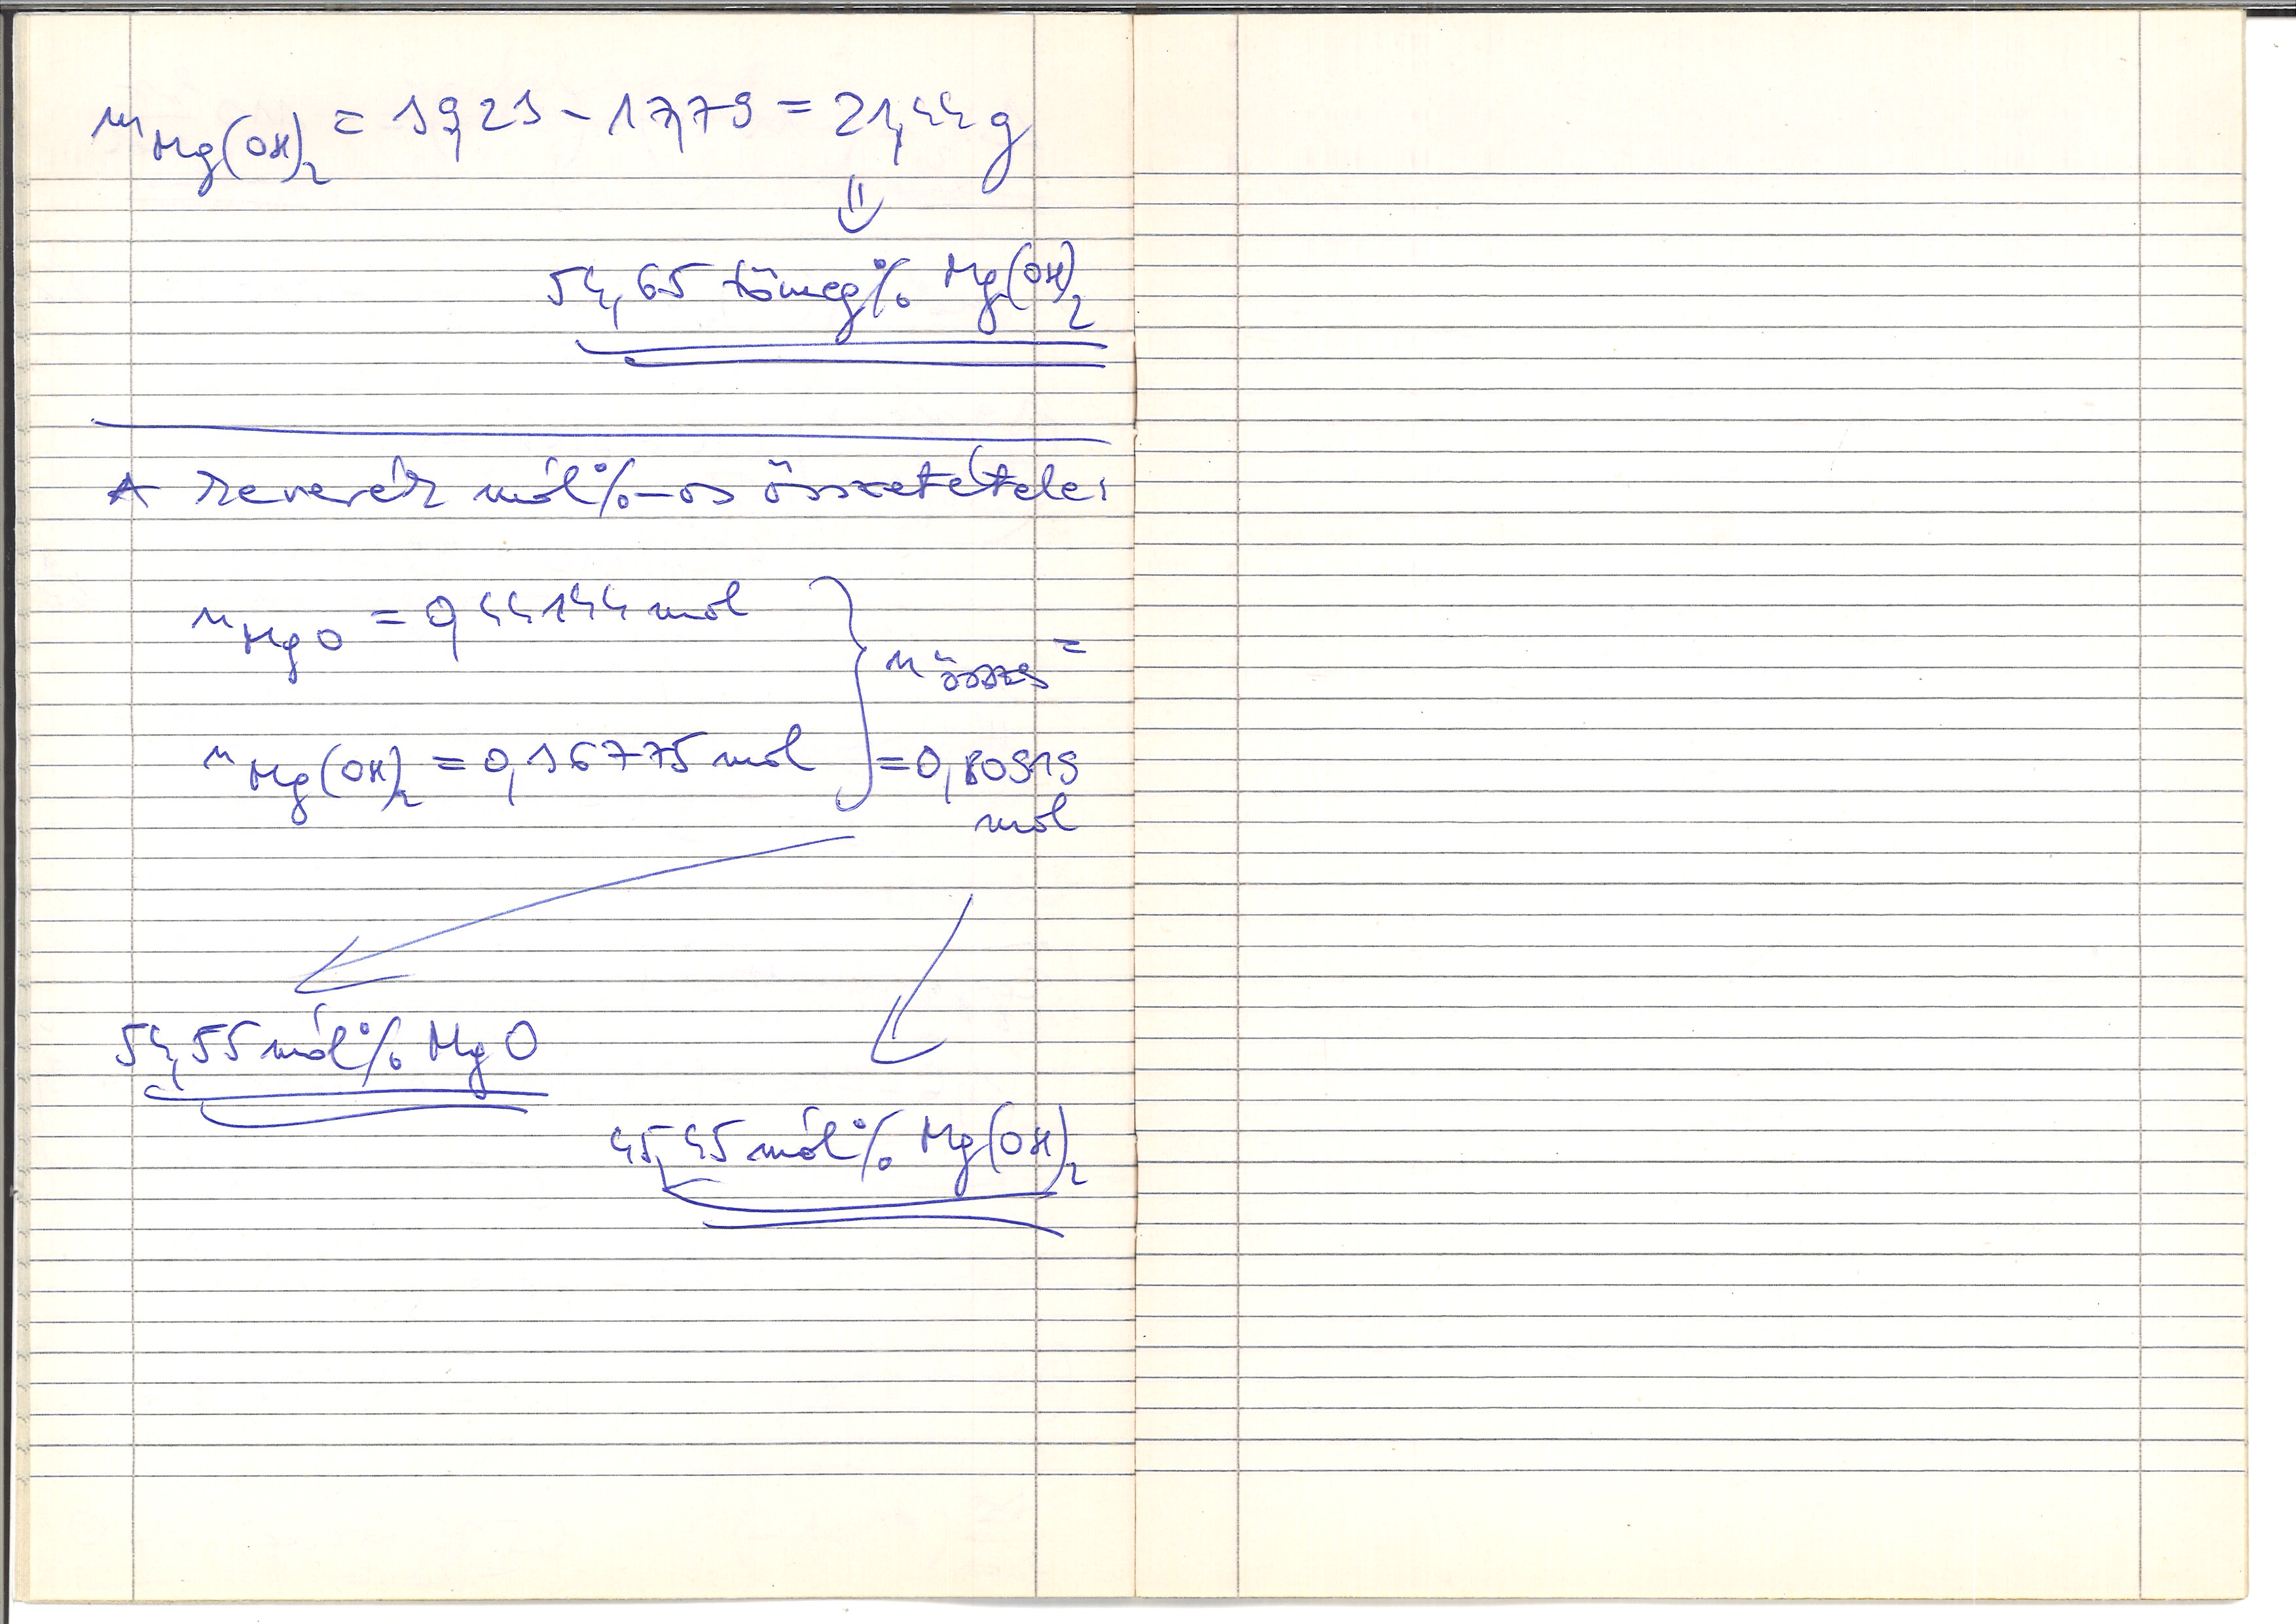 m Mg(OH)₂ = 39,23 - 17,79 = 21,44 g
⇓
54,65 tömeg% Mg(OH)₂
A keverék mól%-os összetétele:
n MgO = 0,44144 mol
n összes =
n Mg(OH)₂ = 0,36775 mol
= 0,80919
mol
54,55 mól% MgO
45,45 mól% Mg(OH)₂